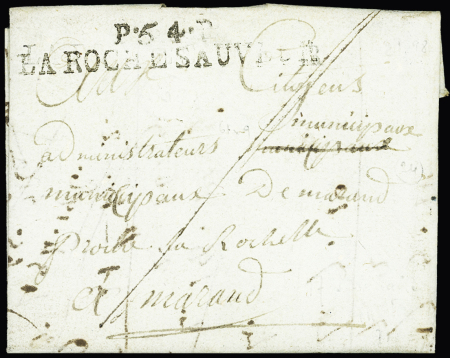 P.54.P
LA ROCHE SAUVEUR
Aux Citoyens
municipaux
administrateurs municipaux
municipaux De marand
proche la Rochelle
a marand